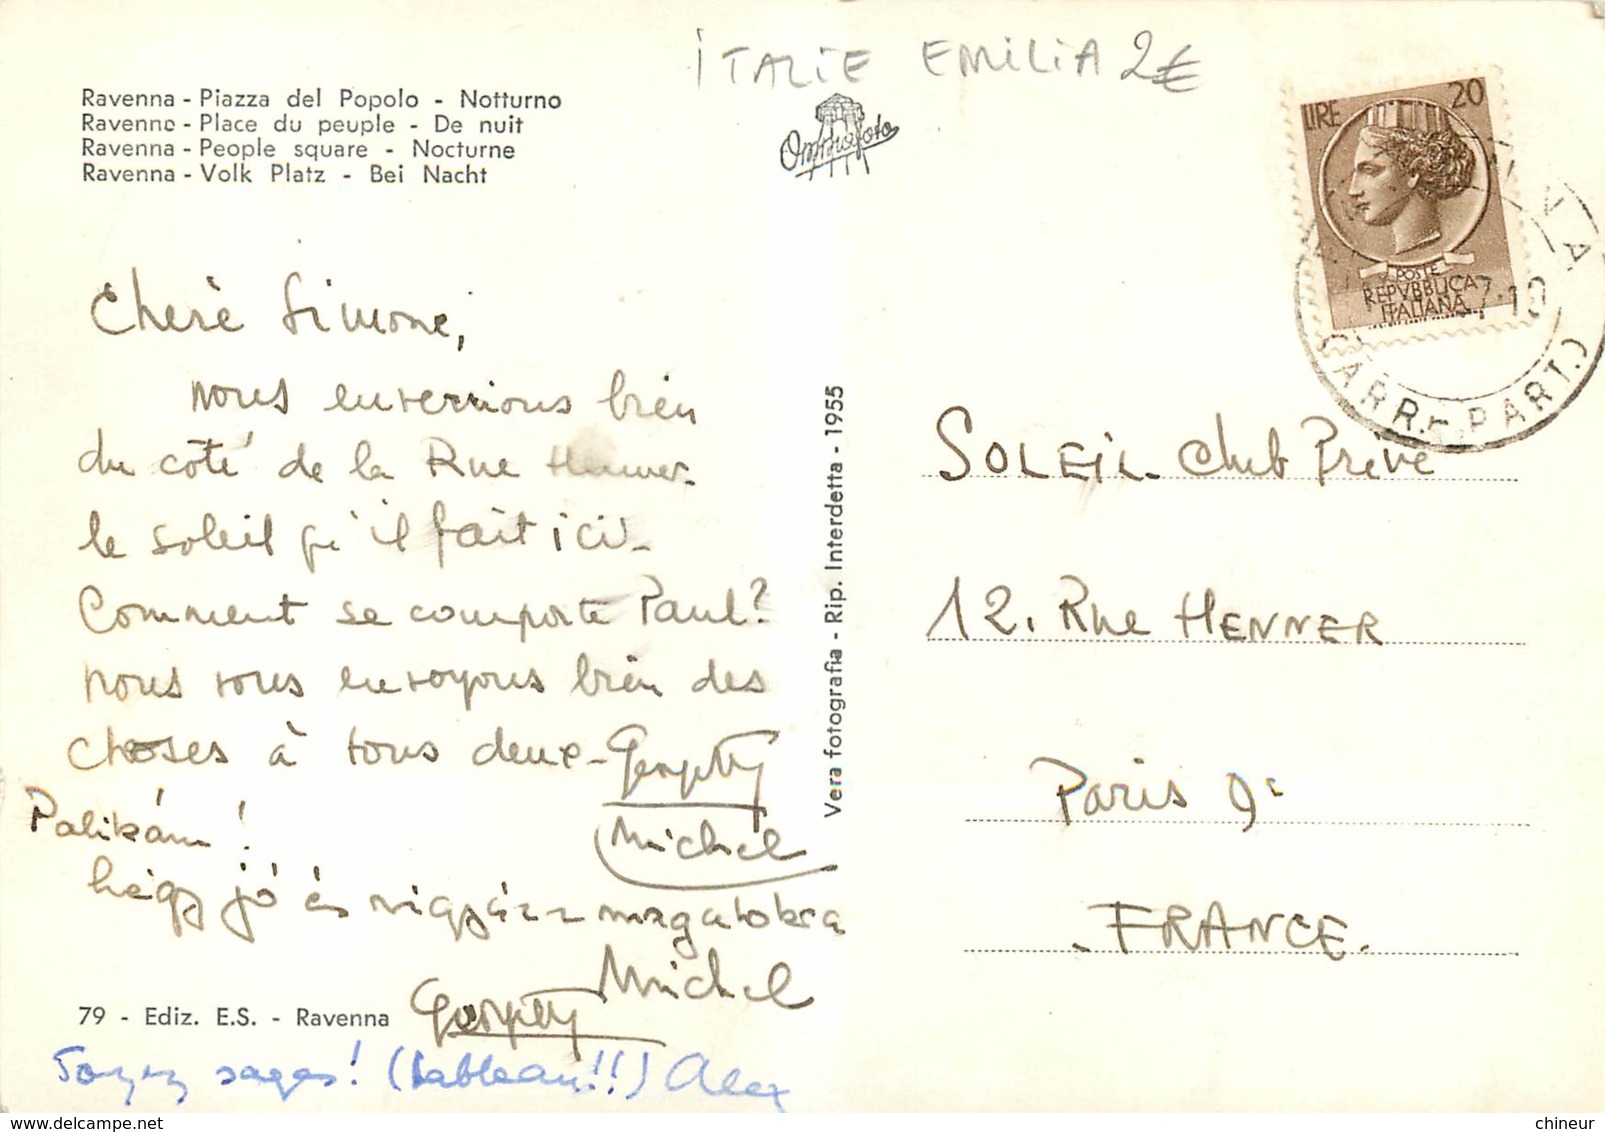 ITALIE EMILIA 2€
Ravenna - Piazza del Popolo - Notturno
Ravenna - Place du peuple - De nuit
Ravenna - People square - Nocturne
Ravenna - Volk Platz - Bei Nacht
Omniafoto
LIRE 20
POSTE
REPVBBLICA
ITALIANA
CARR.E PART.)
Cherè Simone,
nous enverrions bien
du coté de la Rue Henner
le soleil qu'il fait ici -
Comment se comporte Paul?
nous vous envoyons bien des
choses à tous deux -
Michel
Palikám!
légy jó és vigyázz magatokra
Michel
79 - Ediz. E.S. - Ravenna
Soyez sages! (tableau!!) Alex
Vera fotografia - Rip. Interdetta - 1955
SOLEIL Club Privé
12. Rue HENNER
Paris 9e
FRANCE.
chineur